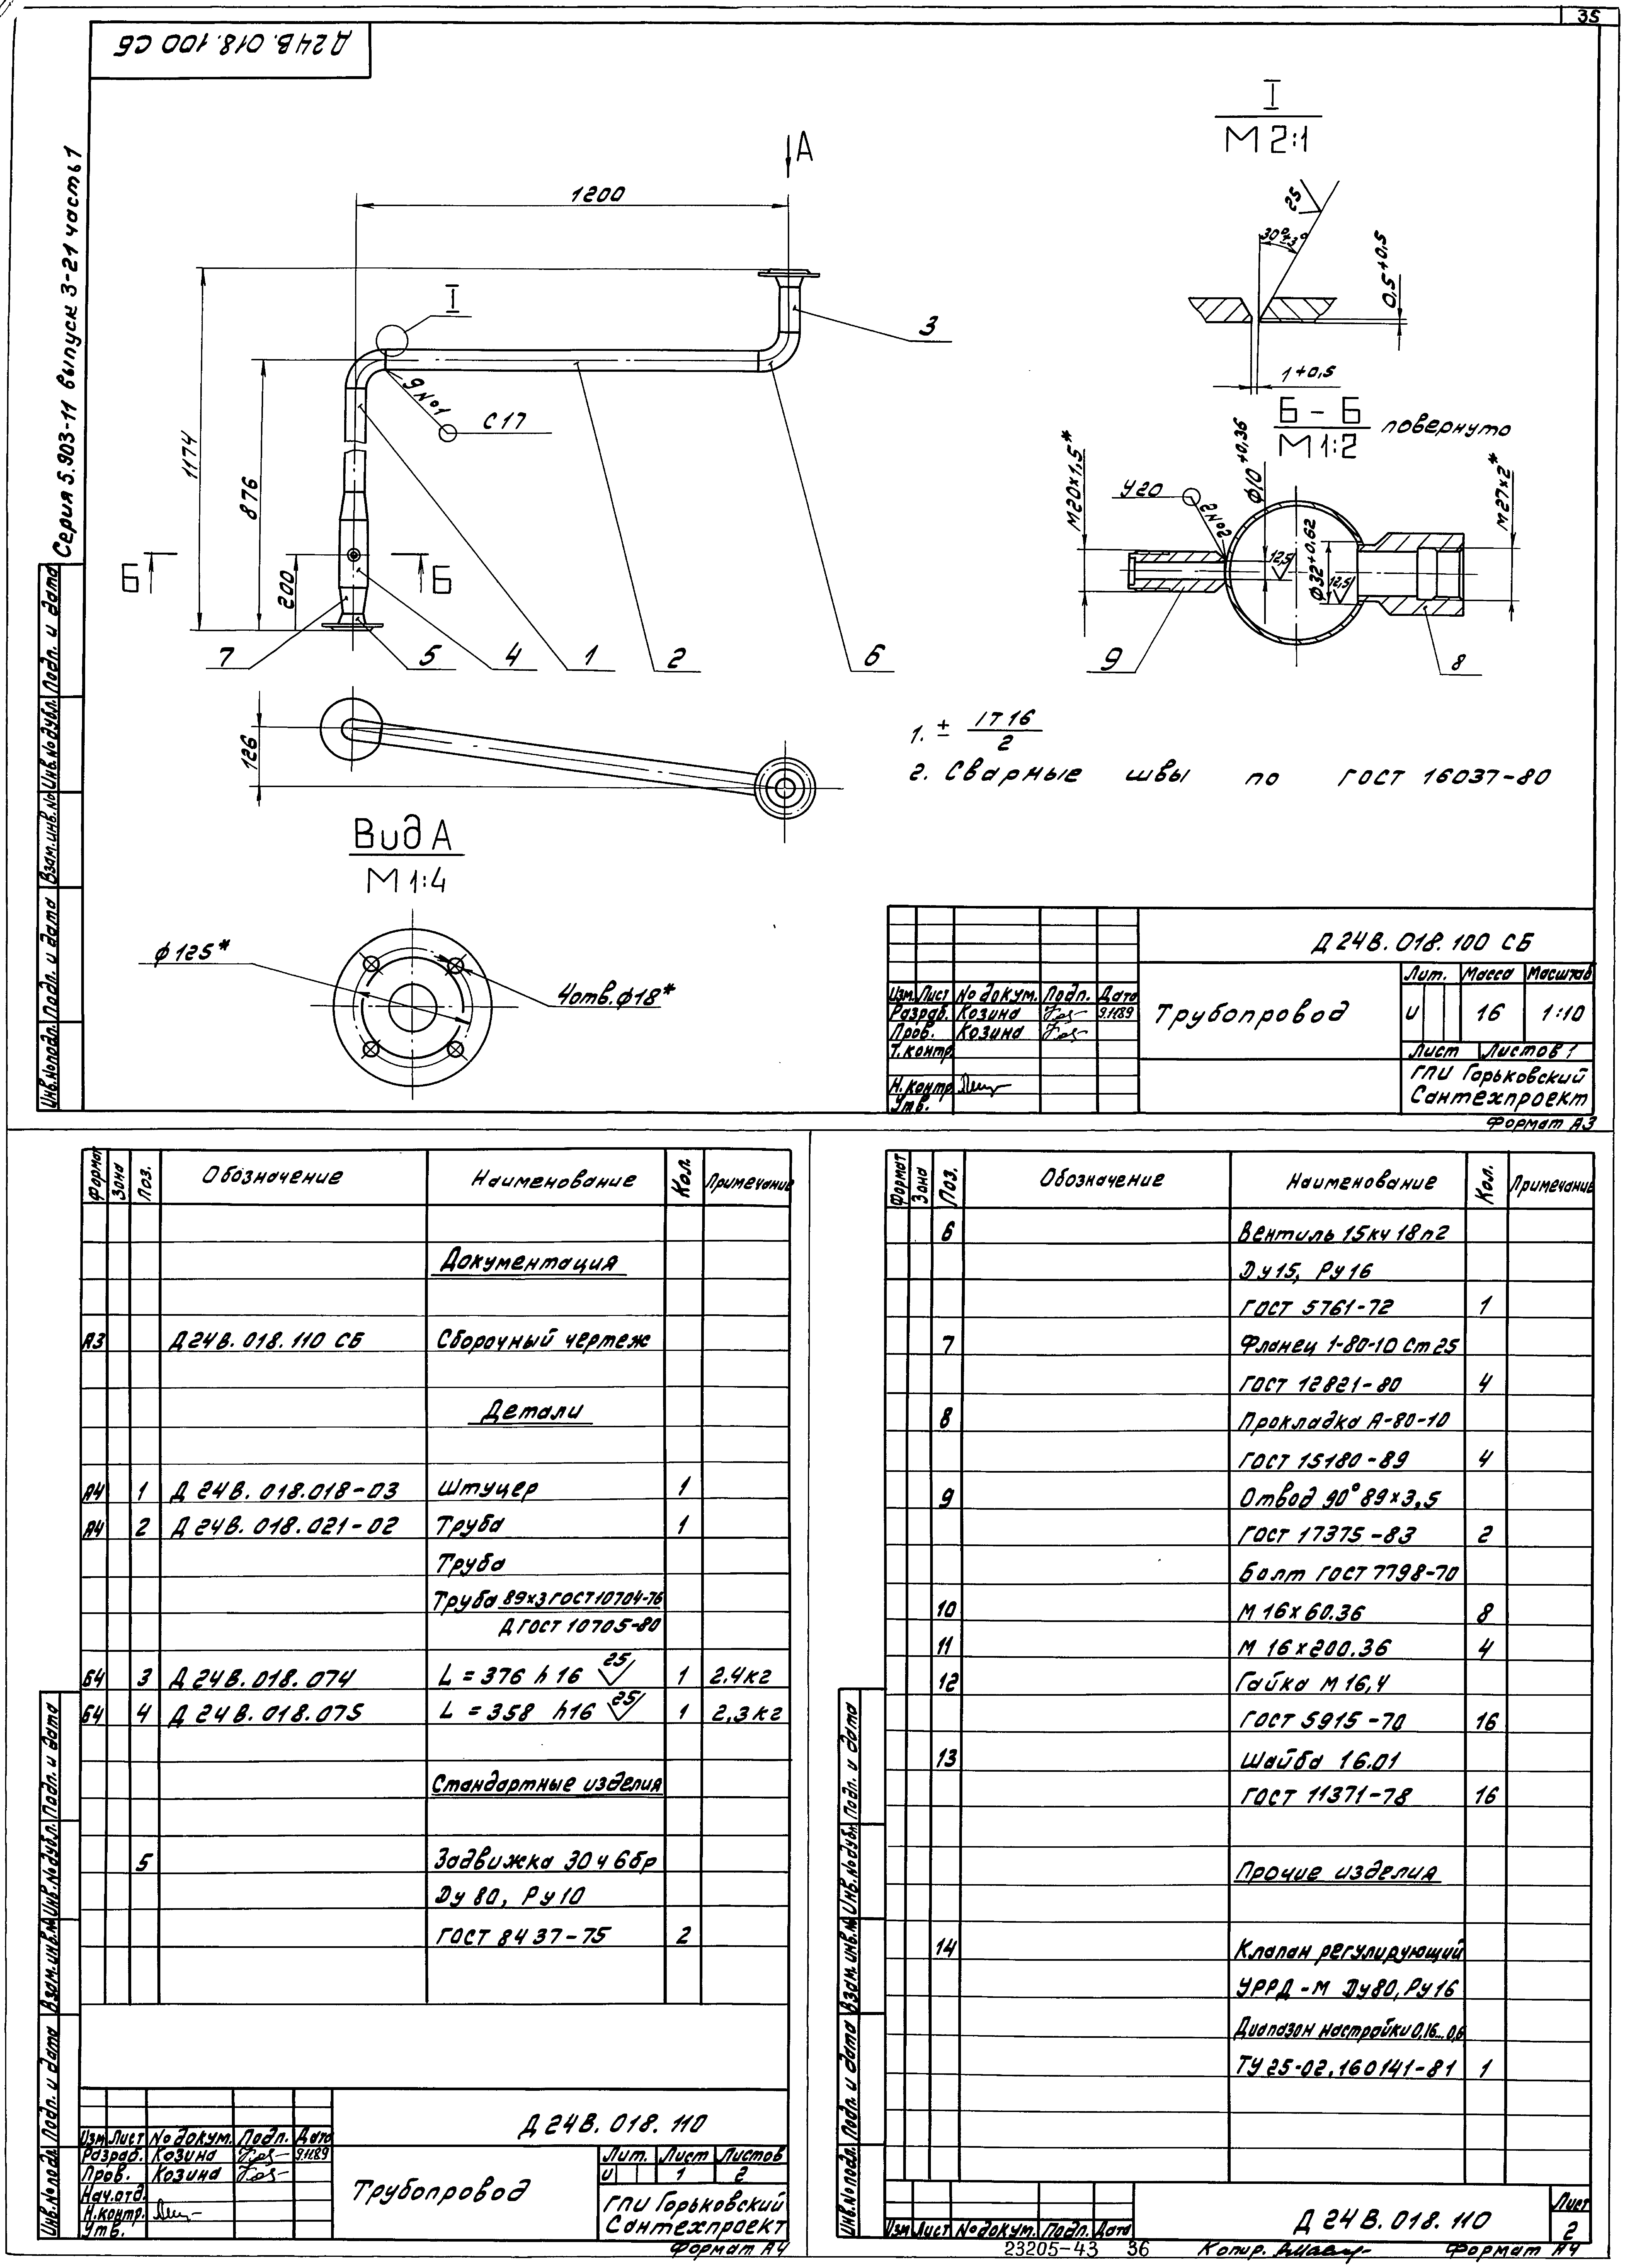 35
Д24В.018.100 СБ
Серия 5.903-11 выпуск 3-21 часть 1
I
М 2:1
А
1200
25
30°±3°
0,5+0,5
I
3
1+0,5
9 №1
С 17
Б – Б повернуто
М 1:2
1174
876
200
Б
Б
М20×1,5*
У20
2 №2
ф10+0,36
12,5
ф32+0,62
12,5
М27×2*
7
5
4
1
2
6
9
8
126
1. ± IT 16
2
2. Сварные швы по ГОСТ 16037-80
Вид А
М 1:4
ф 125*
4отв.ф18*
Д 24В. 018. 100 СБ
Изм. Лист № докум. Подп. Дата
Разраб. Козина 9.11.89
Пров. Козина
Т. контр.
Н. контр.
Утв.
Трубопровод
Лит. Масса Масштаб
И 16 1:10
Лист Листов 1
ГПИ Горьковский
Сантехпроект
Формат А3
Инв.№ подл. Подп. и дата Взам.инв.№ Инв.№ дубл. Подп. и дата
Формат Зона Поз. Обозначение Наименование Кол. Примечание
Документация
А3 Д24В. 018. 110 СБ Сборочный чертеж
Детали
А4 1 Д 24В. 018.018-03 Штуцер 1
А4 2 Д 24В. 018.021-02 Труба 1
Труба
Труба 89×3 ГОСТ 10704-76
Д ГОСТ 10705-80
Б4 3 Д 24В. 018. 074 L = 376 h 16 25 1 2.4кг
Б4 4 Д 24В. 018.075 L = 358 h16 25 1 2,3кг
Стандартные изделия
5 Задвижка 30ч 6бр
Ду 80, Ру 10
ГОСТ 8437-75 2
Д 24В. 018. 110
Изм Лист № докум. Подп. Дата
Разраб. Козина 9.11.89
Пров. Козина
Нач.отд.
Н.контр.
Утв.
Трубопровод
Лит. Лист Листов
И 1 2
ГПИ Горьковский
Сантехпроект
Формат А4
Инв.№ подл. Подп. и дата Взам.инв.№ Инв.№ дубл. Подп. и дата
Формат Зона Поз. Обозначение Наименование Кол. Примечание
6 Вентиль 15кч 18п2
Ду15, Ру 16
ГОСТ 5761-72 1
7 Фланец 1-80-10 Ст25
ГОСТ 12821-80 4
8 Прокладка А-80-10
ГОСТ 15180-89 4
9 Отвод 90° 89×3,5
ГОСТ 17375-83 2
Болт ГОСТ 7798-70
10 М 16×60.36 8
11 М 16×200.36 4
12 Гайка М 16,4
ГОСТ 5915-70 16
13 Шайба 16.01
ГОСТ 11371-78 16
Прочие изделия
14 Клапан регулирующий
УРРД-М Ду80, Ру16
Диапазон настройки 0,16...0,6
ТУ 25-02.160141-81 1
Инв.№ подл. Подп. и дата Взам.инв.№ Инв.№ дубл. Подп. и дата
Изм Лист № докум. Подп. Дата
Д 24В. 018. 110
Лист
2
23205-43 36 Копир. Формат А4